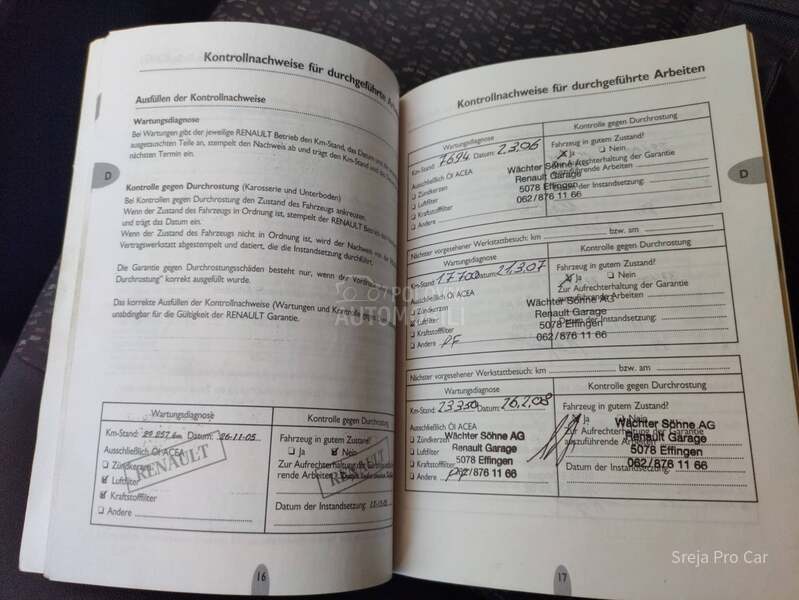 Kontrollnachweise für durchgeführte Arbeiten
Ausfüllen der Kontrollnachweise
Wartungsdiagnose
Bei Wartungen gibt der jeweilige RENAULT Betrieb den Km-Stand, das Datum und die
ausgetauschten Teile an, stempelt den Nachweis ab und trägt den Km-Stand und das
nächsten Termin ein.
D
Kontrolle gegen Durchrostung (Karosserie und Unterboden)
Bei Kontrollen gegen Durchrostung den Zustand des Fahrzeugs ankreuzen.
Wenn der Zustand des Fahrzeugs in Ordnung ist, stempelt der RENAULT Betrieb den
und trägt das Datum ein.
Wenn der Zustand des Fahrzeugs nicht in Ordnung ist, wird der Nachweis von der
Vertragswerkstatt abgestempelt und datiert, die die Instandsetzung durchführt.
Die Garantie gegen Durchrostungsschäden besteht nur, wenn der
Durchrostung" korrekt ausgefüllt wurde.
Das korrekte Ausfüllen der Kontrollnachweise (Wartungen und Kontrolle
unabdingbar für die Gültigkeit der RENAULT Garantie.
Wartungsdiagnose
Kontrolle gegen Durchrostung
Km-Stand: 29 257 km Datum: 26-11-05
Fahrzeug in gutem Zustand?
Ausschließlich Öl ACEA
Ja Nein
Zündkerzen
Zur Aufrechterhaltung der Garantie
Luftfilter
rende Arbeiten
Kraftstofffilter
Andere
Datum der Instandsetzung:
RENAULT
RENAULT
16
Kontrollnachweise für durchgeführte Arbeiten
Wartungsdiagnose
Kontrolle gegen Durchrostung
Km-Stand: 7694 Datum: 2.3.06
Fahrzeug in gutem Zustand?
Ausschließlich Öl ACEA
Ja Nein
Zündkerzen
Zur Aufrechterhaltung der Garantie
Luftfilter
auszuführende Arbeiten
Kraftstofffilter
Datum der Instandsetzung:
Andere
Wächter Söhne AG
Renault Garage
5078 Effingen
062/876 11 66
D
Nächster vorgesehener Werkstattbesuch: km bzw. am
Wartungsdiagnose
Kontrolle gegen Durchrostung
Km-Stand: 17700 Datum: 21.3.07
Fahrzeug in gutem Zustand?
Ausschließlich Öl ACEA
Ja Nein
Zündkerzen
Zur Aufrechterhaltung der Garantie
Luftfilter
auszuführende Arbeiten
Kraftstofffilter
Datum der Instandsetzung:
Andere PF
Wächter Söhne AG
Renault Garage
5078 Effingen
062/876 11 66
Nächster vorgesehener Werkstattbesuch: km bzw. am
Wartungsdiagnose
Kontrolle gegen Durchrostung
Km-Stand: 23350 Datum: 26.2.08
Fahrzeug in gutem Zustand?
Ausschließlich Öl ACEA
Ja Nein
Zündkerzen
Zur Aufrechterhaltung der Garantie
Luftfilter
auszuführende Arbeiten
Kraftstofffilter
Datum der Instandsetzung:
Andere PF
Wächter Söhne AG
Renault Garage
5078 Effingen
062/876 11 66
Wächter Söhne AG
Renault Garage
5078 Effingen
062/876 11 66
17
POLOVNI
AUTOMOBILI
Sreja Pro Car